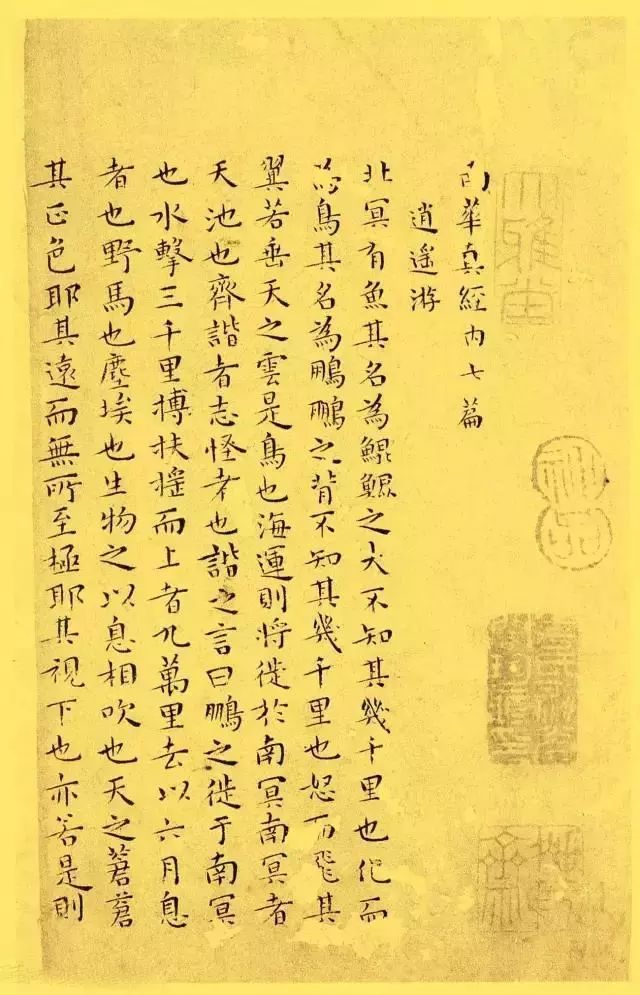 大雅堂
神品
南華真經内七篇
逍遥游
北冥有魚其名為鯤鯤之大不知其幾千里也化而
為鳥其名為鵬鵬之背不知其幾千里也怒而飛其
翼若垂天之雲是鳥也海運則將徙於南冥南冥者
天池也齊諧者志怪者也諧之言曰鵬之徙于南冥
也水擊三千里搏扶搖而上者九萬里去以六月息
者也野馬也塵埃也生物之以息相吹也天之蒼蒼
其正色耶其遠而無所至極耶其視下也亦若是則